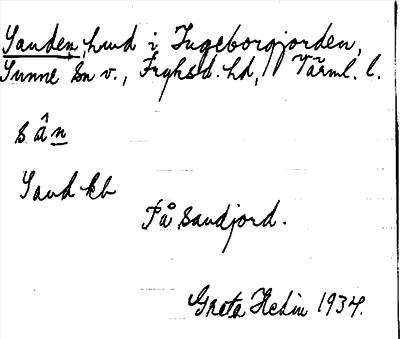 Sanden, hmd i Ingeborgjorden,
Sunne Sn v., Fryksd. hd, Värml. l.
s â n
Sand kb
På sandjord.
Greta Hedin 1934.